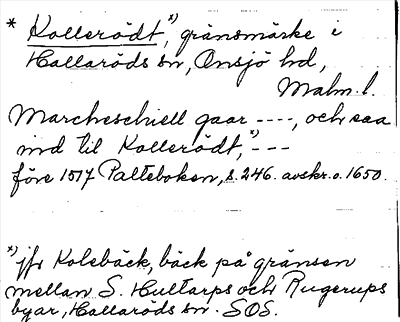 * Kollerödt,*) gränsmärke i
Hallaröds sn, Onsjö hd,
Malm. l.
Marcheschiell gaar ----, och saa
ind til Kollerödt,*) ---
före 1517 Palteboken, s. 246. avskr. o. 1650.
*) jfr Kolsbäck, bäck på gränsen
mellan S. Hultarps och Rugerups
byar, Hallaröds sn. SOS.